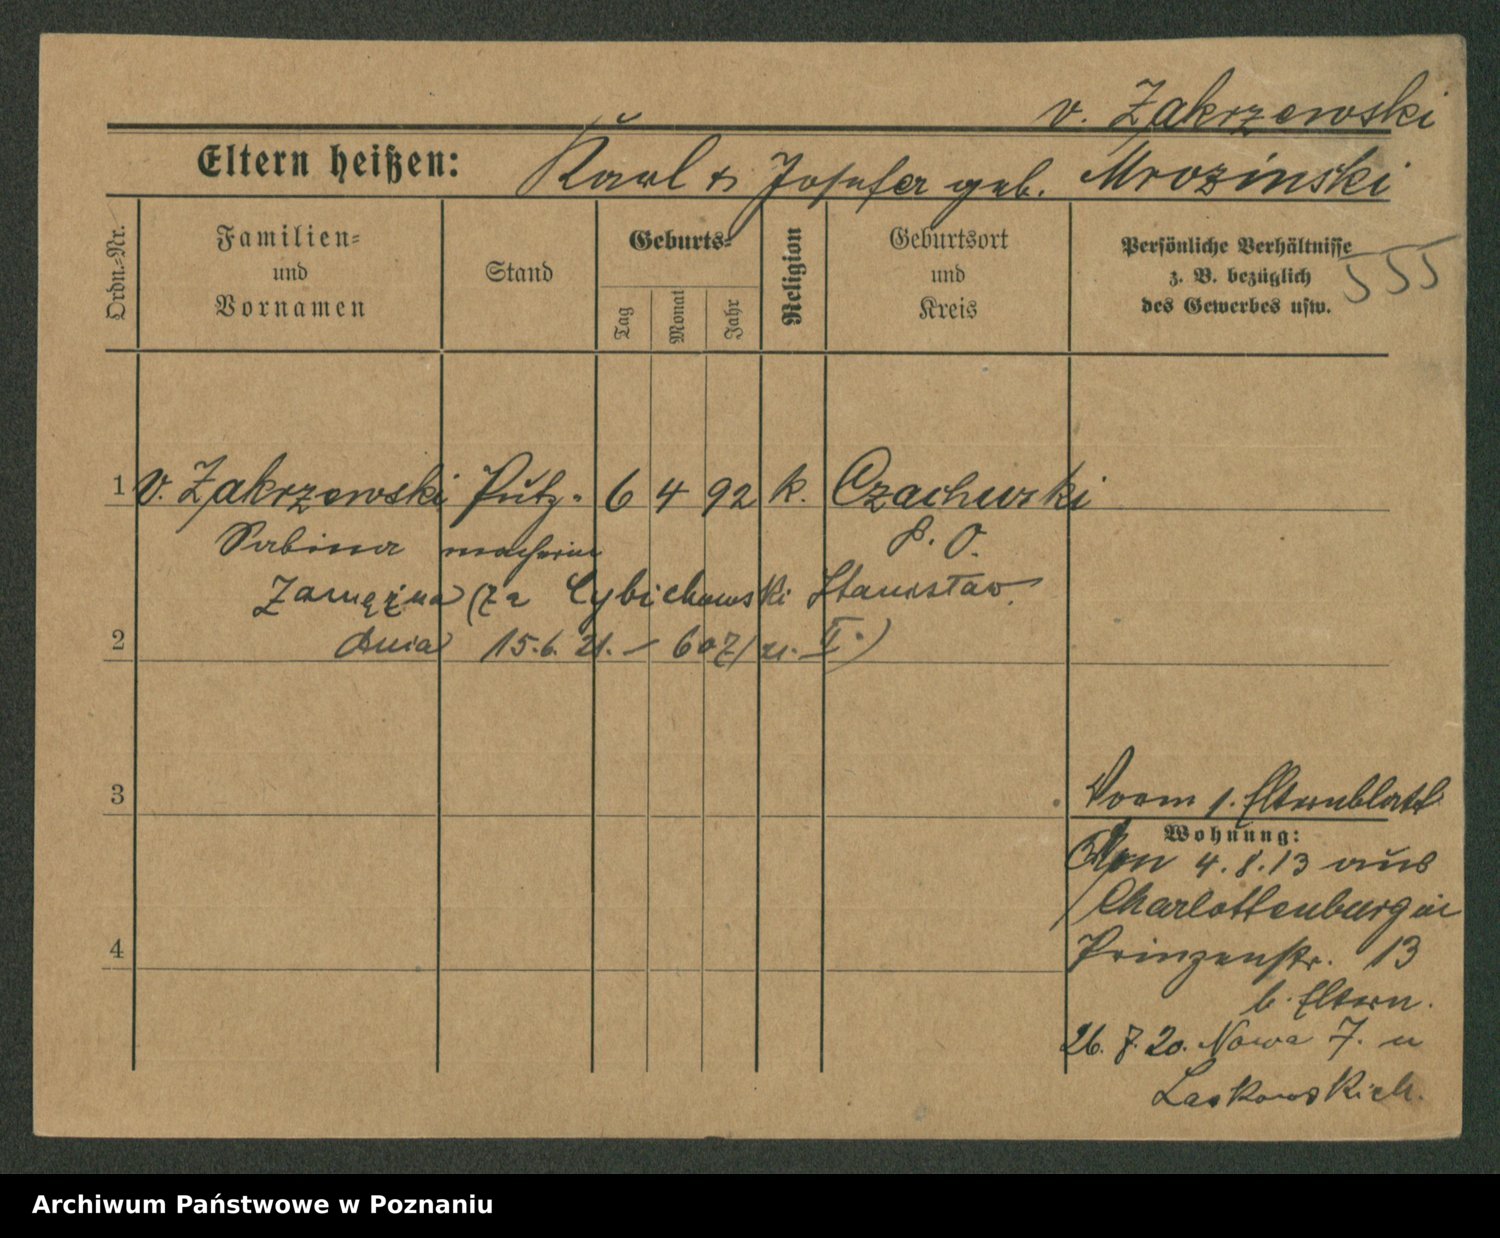 v. Zakrzewski
Eltern heißen: Karl & Josefa geb. Mrozinski
Ordn.-Nr.
Familien-
und
Vornamen
Stand
Geburts-
Tag
Monat
Jahr
Religion
Geburtsort
und
Kreis
Persönliche Verhältnisse
z. B. bezüglich
des Gewerbes usw.
555
1 v. Zakrzewski Putz- 6 4 92 k. Czachurki
Sabina macherin P. O.
Zamężna (za Cybichowski Stanisław
2 dnia 15.6.21. – 607/21. II.)
3
Vorm 1. Elternblatt
Wohnung:
4.8.13 aus
Charlottenburg in
4 Prinzenstr. 13
b. Eltern.
26. 7. 20. Nowa 7. u
Laskowskich.
Archiwum Państwowe w Poznaniu